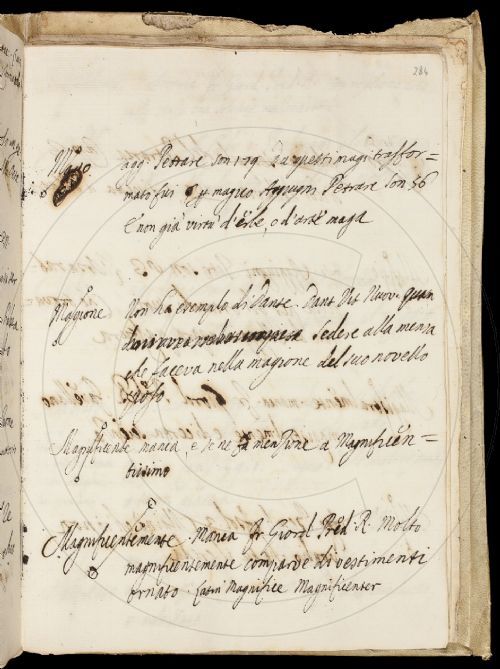 284
Mago agg. Petrarc son 179. da questi magi trasfor=
mato fui Aggiugni Petrarc son 56
E non già virtù d'erbe, o d'arte maga
Magione Non ha esemplo di Dante. Dant Vit Nuov. quan
Sedere alla mensa
che faceva nella magione del suo novello
sposo
Magnificente manca e se ne fa menzione a Magnificen=
tissimo
Magnificentemente. Manca Fr Giord. Pred. R. Molto
magnificentemente comparve di vestimenti
ornato. Latin Magnifice Magnificenter